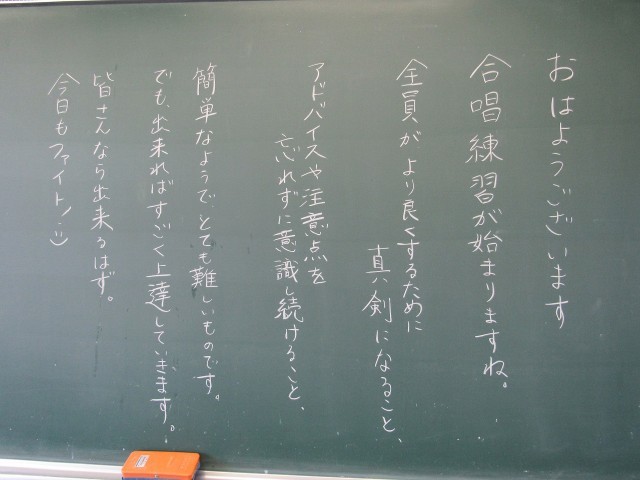 おはようございます
合唱練習が始まりますね。
全員がより良くするために
真剣になること、
アドバイスや注意点を
忘れずに意識し続けること、
簡単なようで、とても難しいものです。
でも、出来ればすごく上達していきます。
皆さんなら出来るはず。
今日もファイト!:)